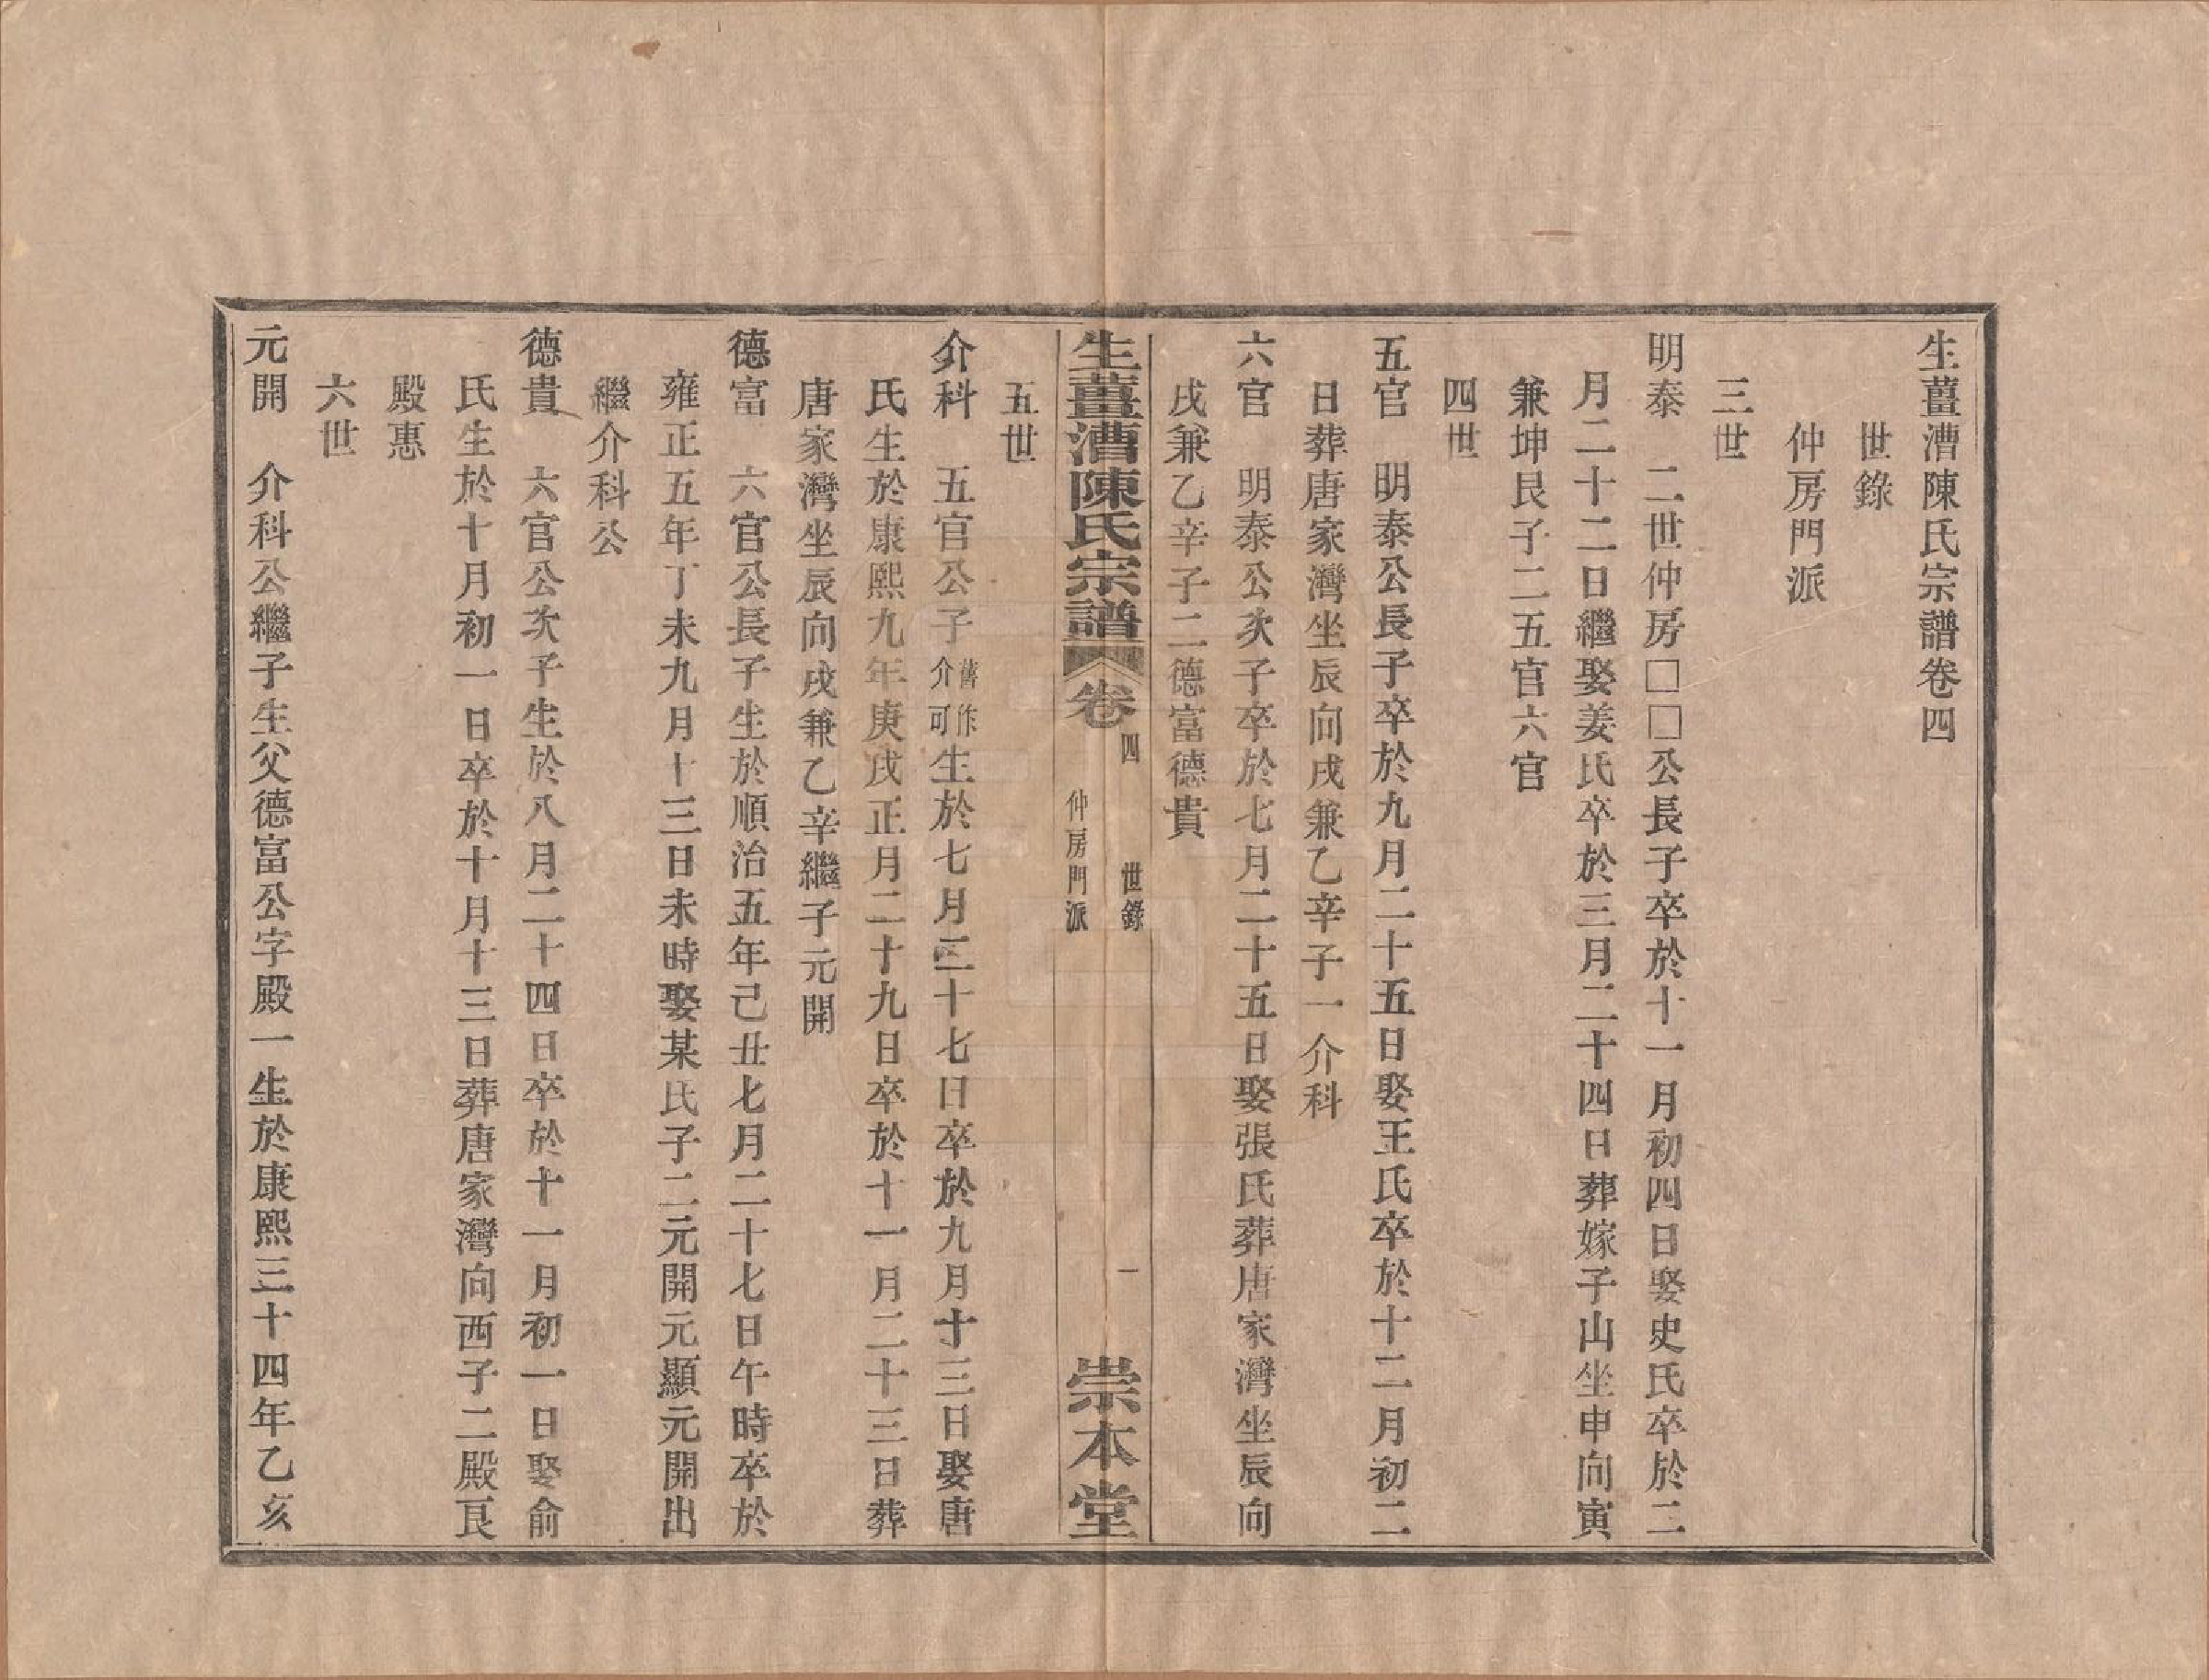 生薑漕陳氏宗譜卷四
世錄
仲房門派
三世
明泰　二世仲房□□公長子卒於十一月初四日娶史氏卒於二
月二十二日繼娶姜氏卒於三月二十四日葬嫁子山坐申向寅
兼坤艮子二五官六官
四世
五官　明泰公長子卒於九月二十五日娶王氏卒於十二月初二
日葬唐家灣坐辰向戌兼乙辛子一介科
六官　明泰公次子卒於七月二十五日娶張氏葬唐家灣坐辰向
戌兼乙辛子二德富德貴
生薑漕陳氏宗譜　卷四　世錄　仲房門派　一　崇本堂
五世
介科　五官公子舊作介可生於七月二十七日卒於九月十三日娶唐
氏生於康熙九年庚戌正月二十九日卒於十一月二十三日葬
唐家灣坐辰向戌兼乙辛繼子元開
德富　六官公長子生於順治五年己丑七月二十七日午時卒於
雍正五年丁未九月十三日未時娶某氏子二元開元顯元開出
繼介科公
德貴　六官公次子生於八月二十四日卒於十一月初一日娶俞
氏生於十月初一日卒於十月十三日葬唐家灣向西子二殿艮
殿惠
六世
元開　介科公繼子生父德富公字殿一生於康熙三十四年乙亥